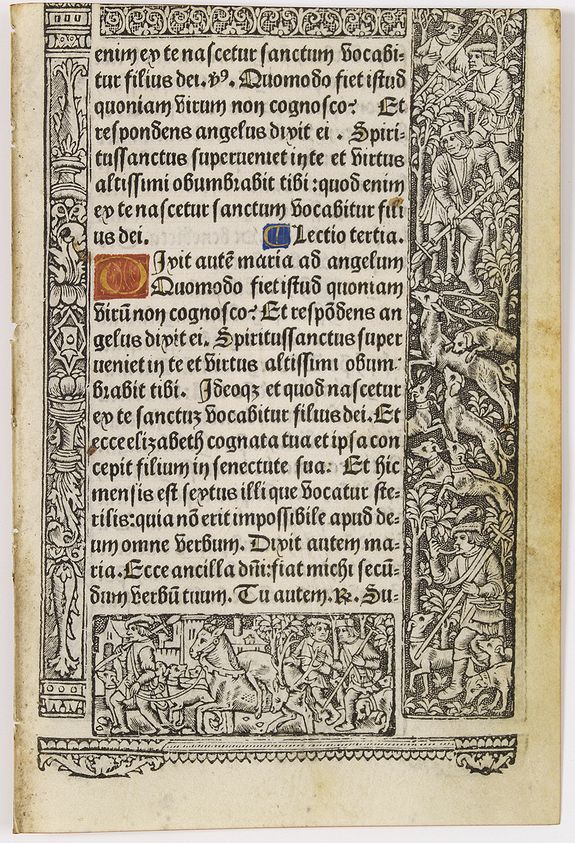 enim ex te nascetur sanctum vocabi-
tur filius dei. v9. Quomodo fiet istud
quoniam virum non cognosco? Et
respondens angelus dixit ei. Spiri-
tussanctus superveniet in te et virtus
altissimi obumbrabit tibi: quod enim
ex te nascetur sanctum vocabitur fili
us dei. C Lectio tertia.
Dixit autē maria ad angelum
Quomodo fiet istud quoniam
virū non cognosco? Et respōdens an
gelus dixit ei. Spiritussanctus super
veniet in te et virtus altissimi obum-
brabit tibi. Ideoqz et quod nascetur
ex te sanctuz vocabitur filius dei. Et
ecce elizabeth cognata tua et ipsa con
cepit filium in senectute sua. Et hic
mensis est sextus illi que vocatur ste-
rilis: quia nō erit impossibile apud de-
um omne verbum. Dixit autem ma-
ria. Ecce ancilla dn̄i: fiat michi secū-
dum verbū tuum. Tu autem. R. Su-